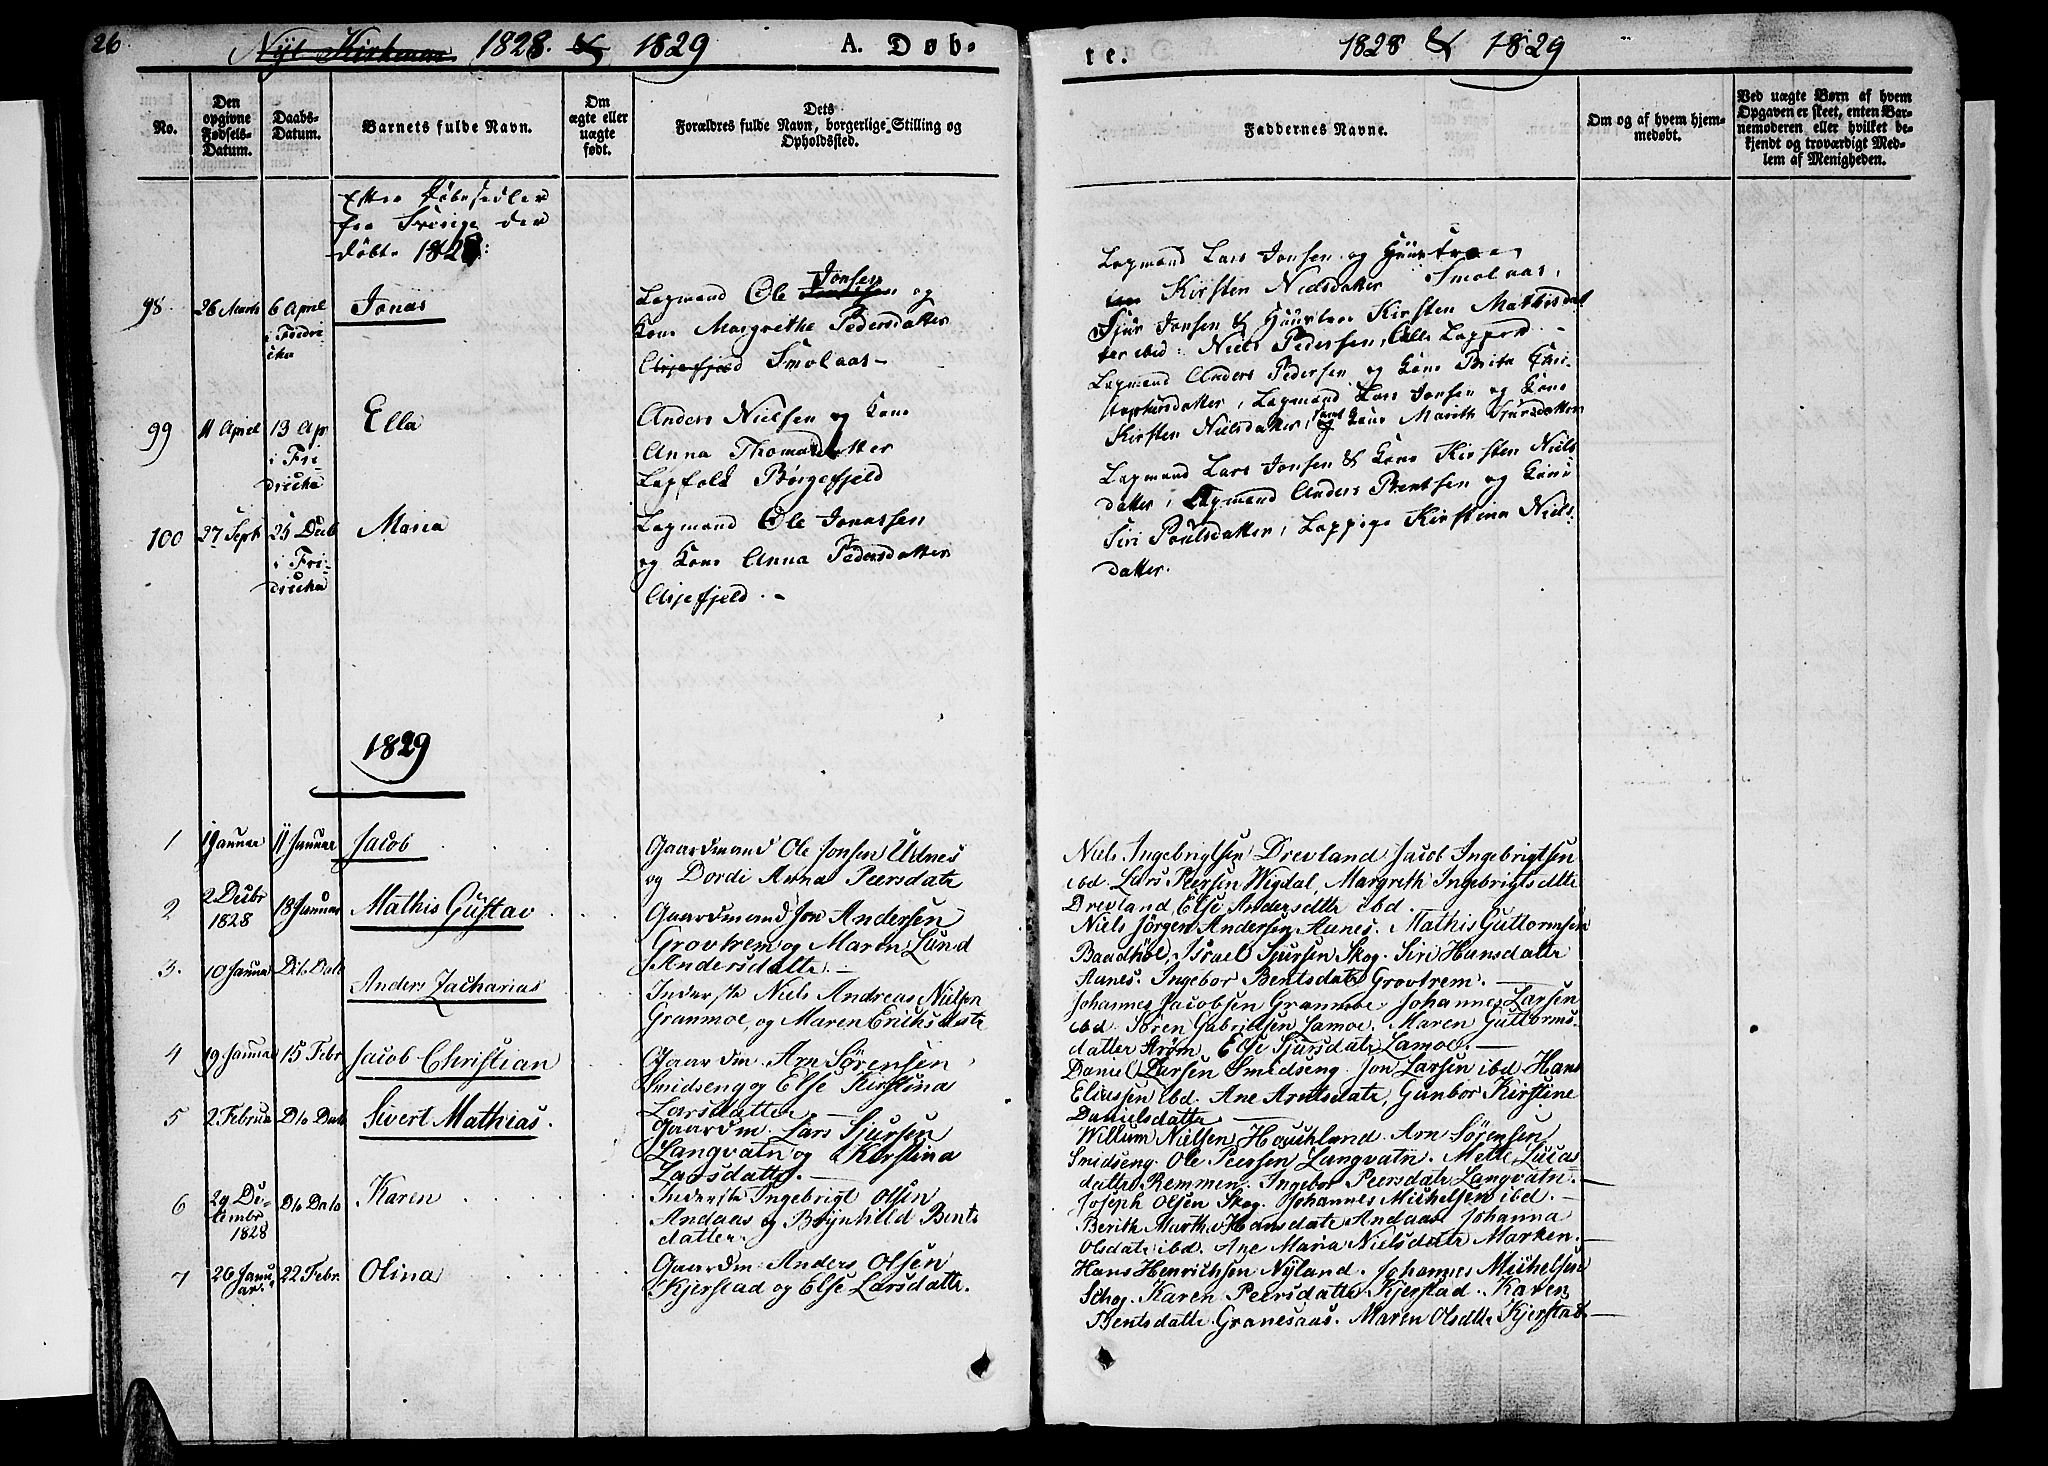 26
Nÿt Kirkeaar 1828. & 1829
A. Døb-
te.
1828 & 1829
No.
Den
opgivne
Fødsels-
Datum.
Daabs-
Datum.
Barnets fulde Navn.
Om
ægte eller
uægte
født.
Dets
Forældres fulde Navn, borgerlige Stilling og
Opholdssted.
Faddernes Navne.
Om og af hvem hjem-
medøbt.
Ved uægte Børn af hvem
Opgaven er skeet, enten Bar-
nemoderen eller hvilket be-
kjendt og troværdigt Med-
lem af Menigheden.
Efter Døbesedler
fra Sverige der
døbte 1828:
98
26 Marts
6 April
i Fredri-
cha
Jonas
Lapmand Ole Jonsen og
Kone Margrethe Pedersdatter
Smolaas
Lapmand Lars Jonsen og Huustroe
Kirsten Nielsdatter Smolaas,
Sjur Jonsen & Huustroe Kirsten Mathisdat
ter ibid: Niels Pedersen,
99
11 April
13 Ap
i Fri-
dricka
Ella
Anders Nielsen og Kone
Anna Thomasdatter
Lapfolk Børgefjeld
Lapmand Anders Pedersen og Kone Brita Chri-
stophersdatter, Lapmand Lars Jonsen og Kone
Kirsten Nielsdatter, samt Kone Marith Sjursdatter
100
27 Sept
25 Decb
i Fri-
dricka
Maria
Lapmand Ole Jonassen
og Kone Anna Pedersdatter
Lapmand Lars Jonsen & Kone Kirsten Niels
datter, Lapmand Anders Bentsen og Kone
Siri Poulsdatter, Lappige Kirstina Niels-
datter.
1829
1
1 Januar
11 Januar
Jacob
Gaardmand Ole Jonsen Udnes
og Dordi Anna Peersdatr
Niels Ingebrigtsen Drevland Jacob Ingebrigtsen
ibd. Lars Peersen Wigdal, Margreth Ingebrigtsdttr
Drevland, Else Andersdttr ibd.
2
2 Decbr
1828
18 Januar
Mathis Gustav
Gaardmand Jon Andersen
Grovtrem og Maren Lund
Andersdattr.
Niels Jørgen Andersen Aunes. Mathis Guttormsen
Baadhol, Israel Sjursen Skog. Siri Hansdattr
Aunes. Ingebor Bentsdatr Grovtrem.
3.
10 Januar
Dito Dato
Anders Zacharias
Inderste Niels Andreas Nielsen
Granmoe, og Maren Erichsdatr
Johannes Jacobsen Granmoe. Johannes Larsen
ibd. Søren Gabrielsen Lamoe. Maren Guttorms-
datter Strøm, Else Sjursdatr Lamoe.
4
19 Januar
15 Febr
Jacob Christian
Gaardm. Arn Sørensen
Smidseng og Else Kirstina
Larsdatter
Daniel Larsen Smidseng. Jon Larsen ibd Hans
Eliassen ibd. Ane Arntsdatr, Gunbor Kirstine
Danielsdattr
5
2 Februar
Dto Dato
Sivert Mathias.
Gaardm. Lars Sjursen
Langvatn og Kirstina
Larsdattr.
Willum Nielsen Hauchland. Arn Sørensen
Smidseng. Ole Peersen Langvatn. Mette Lucas
dattr Remmen. Ingebor Peersdatr Langvatn.
6
29 De-
cembr
1828
Dto Dato
Karen
Inderste Ingebrigt Olsen
Andaas og Brynhild Bents
datter
Joseph Olsen Skog. Johannes Michelsen ibd.
Berith Martha Hansdatr Andaas Johanna
Olsdatr ibd. Ane Maria Nielsdatr Marken.
7
26 Janu-
ar.
22 Febr.
Olina
Gaardm. Anders Olsen
Kjerstad og Else Larsdattr.
Hans Henrichsen Nyland. Johannes Michelsen
Schog. Karen Peersdattr Kjerstad. Karen
Bentsdattr Granesaas. Maren Olsdttr Kjerstad.